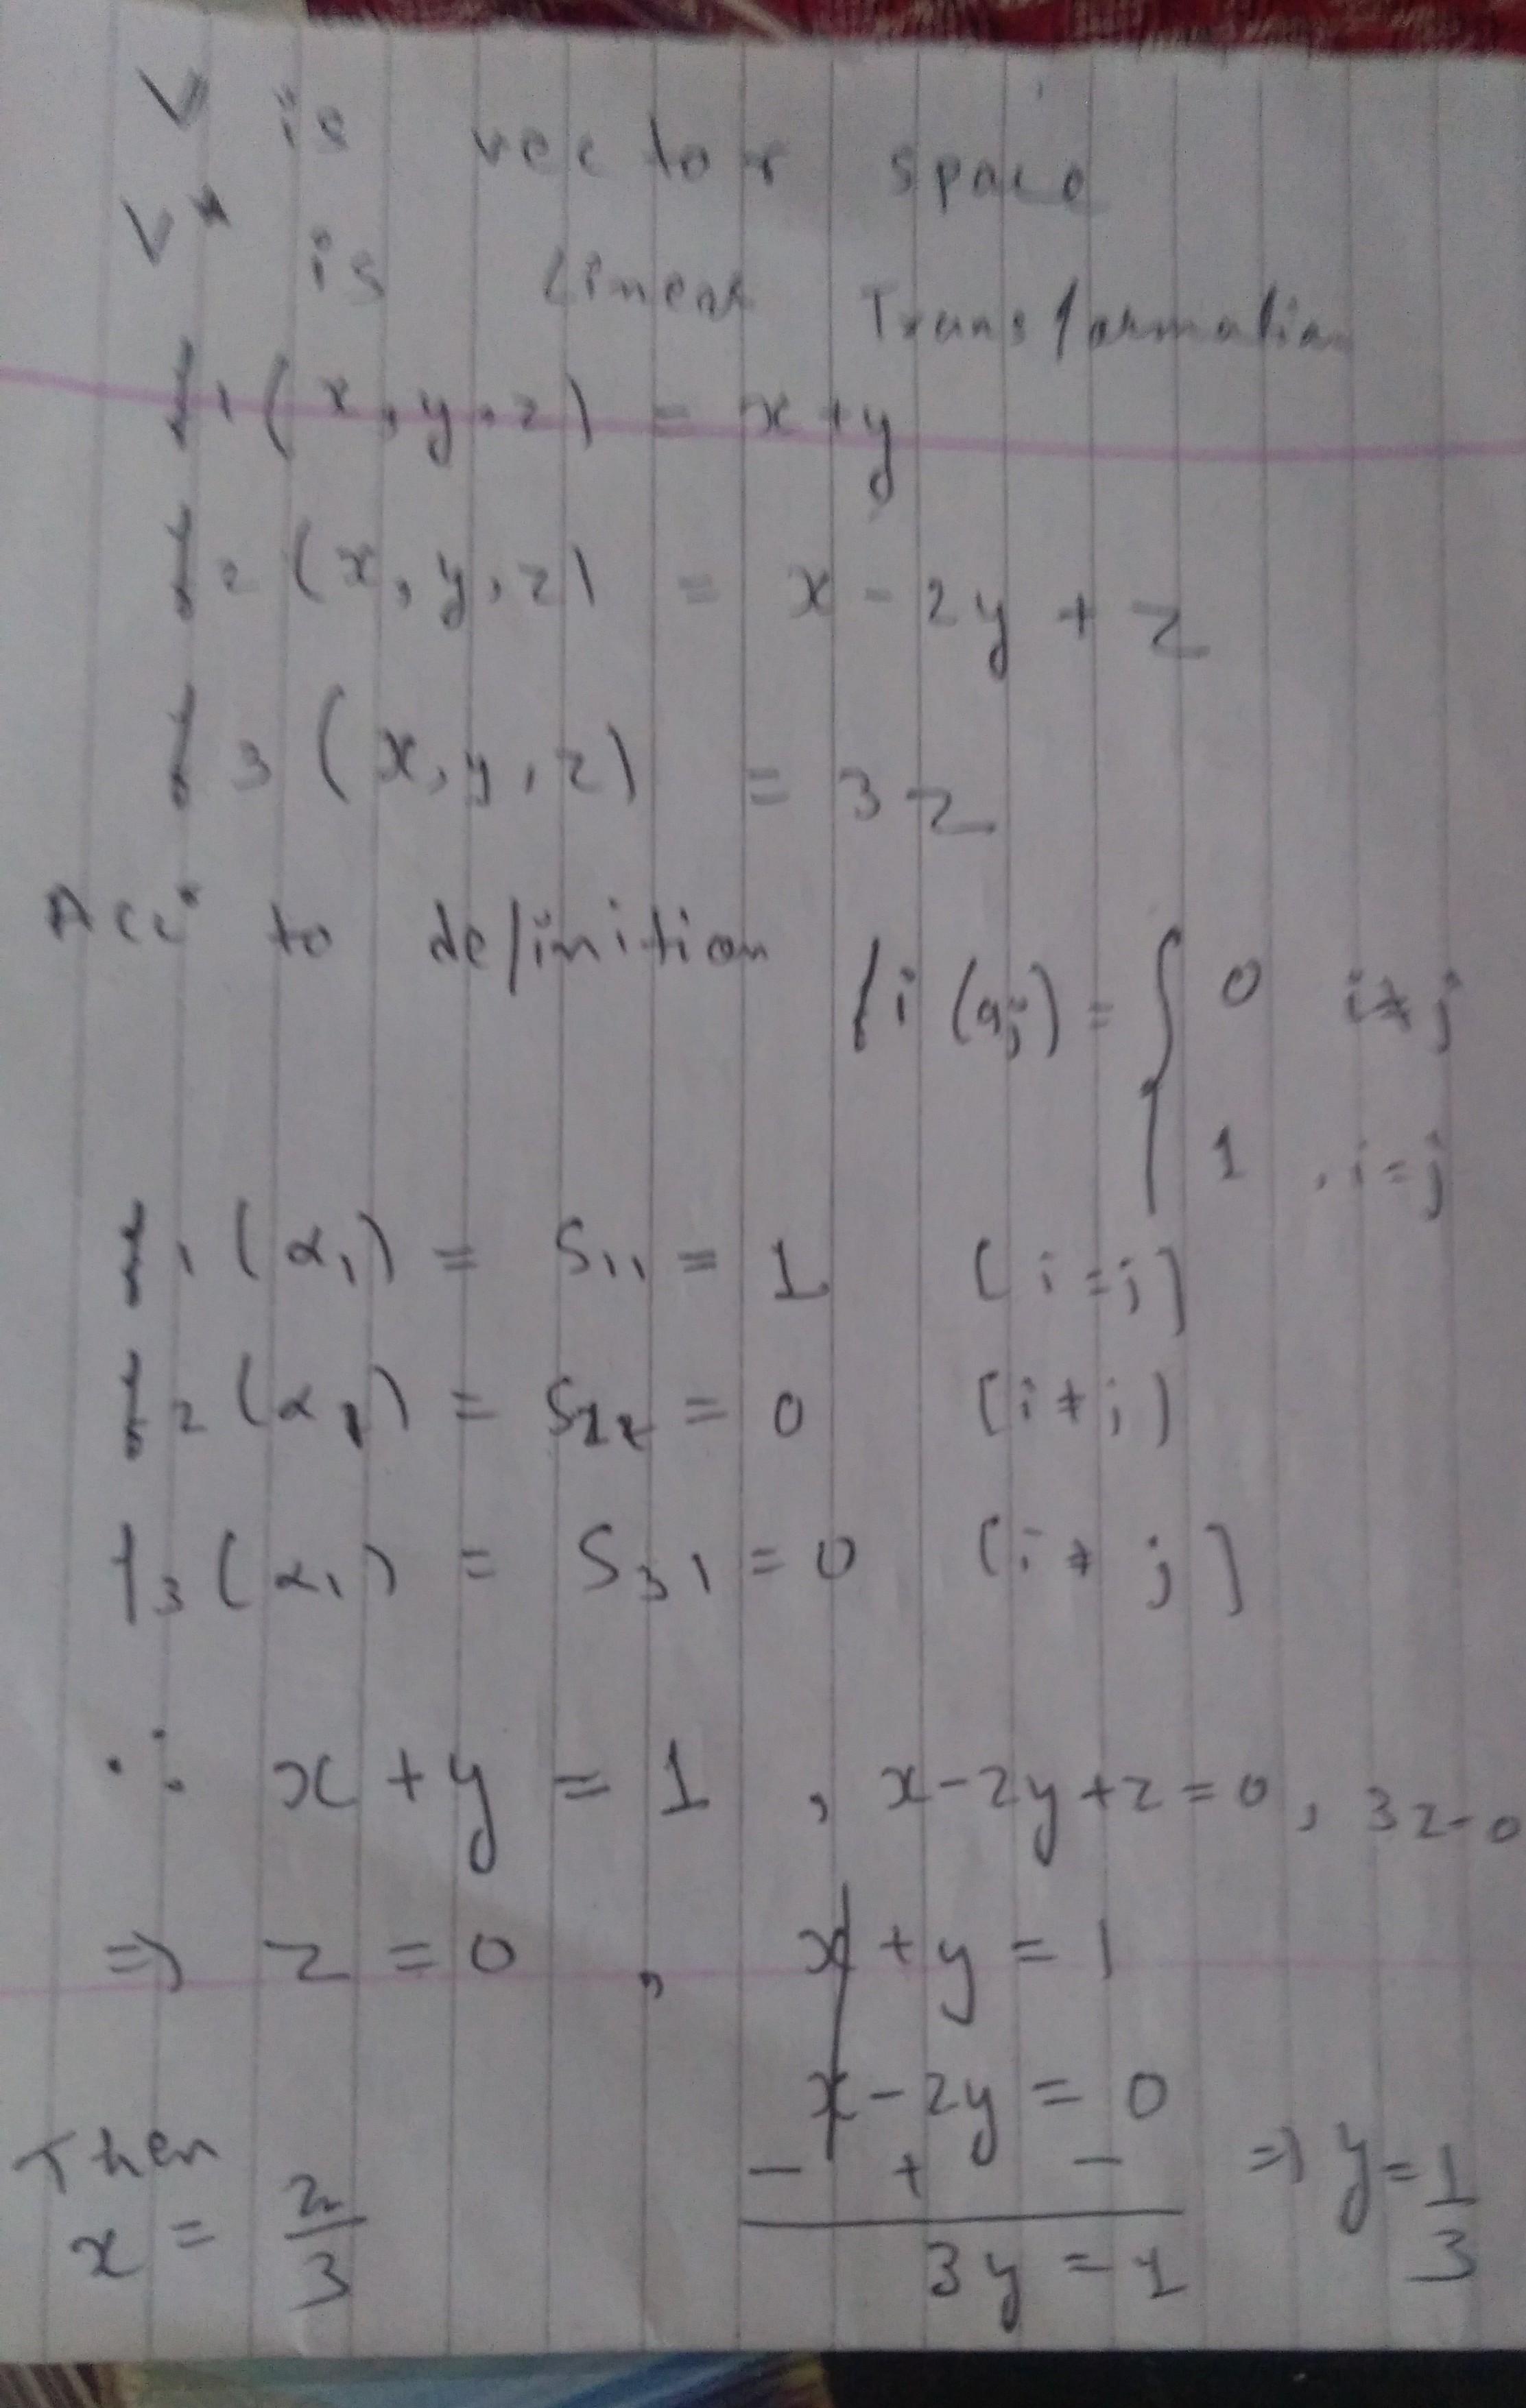 V is vector space
V* is Linear Transformation
f1(x,y,z) = x+y
f2(x,y,z) = x-2y+z
f3(x,y,z) = 3z
Acc* to definition fi(aj) = { 0 i≠j
1 , i=j
f1(α1) = S11 = 1 [i=j]
f2(α1) = = 0 [i≠j]
f3(α1) = S31 = 0 [i≠j]
∴ x+y = 1 , x-2y+z=0, 3z=0
⇒ z = 0 , x+y = 1
x-2y = 0
- + - ⇒ y=1/3
Then
x = 2/3 3y = 1